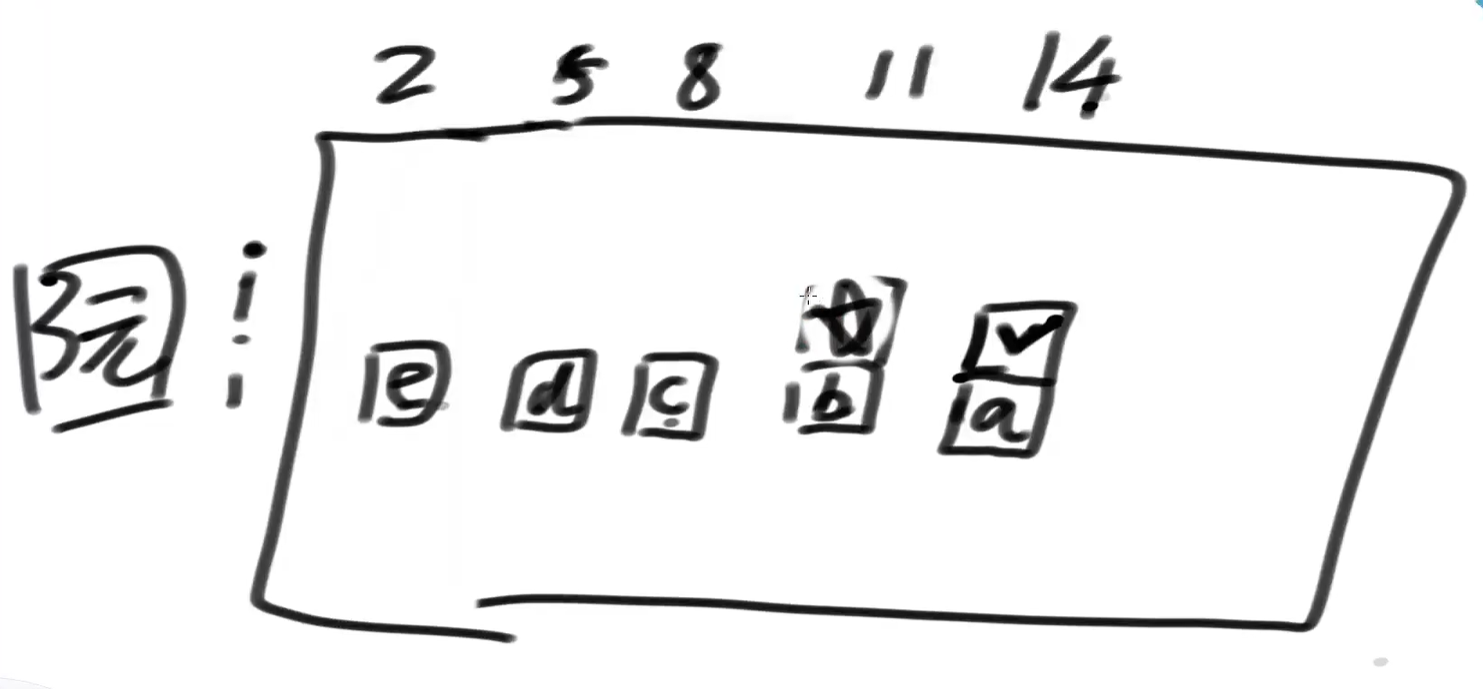 2 5 8 11 14
3元
e d c b a